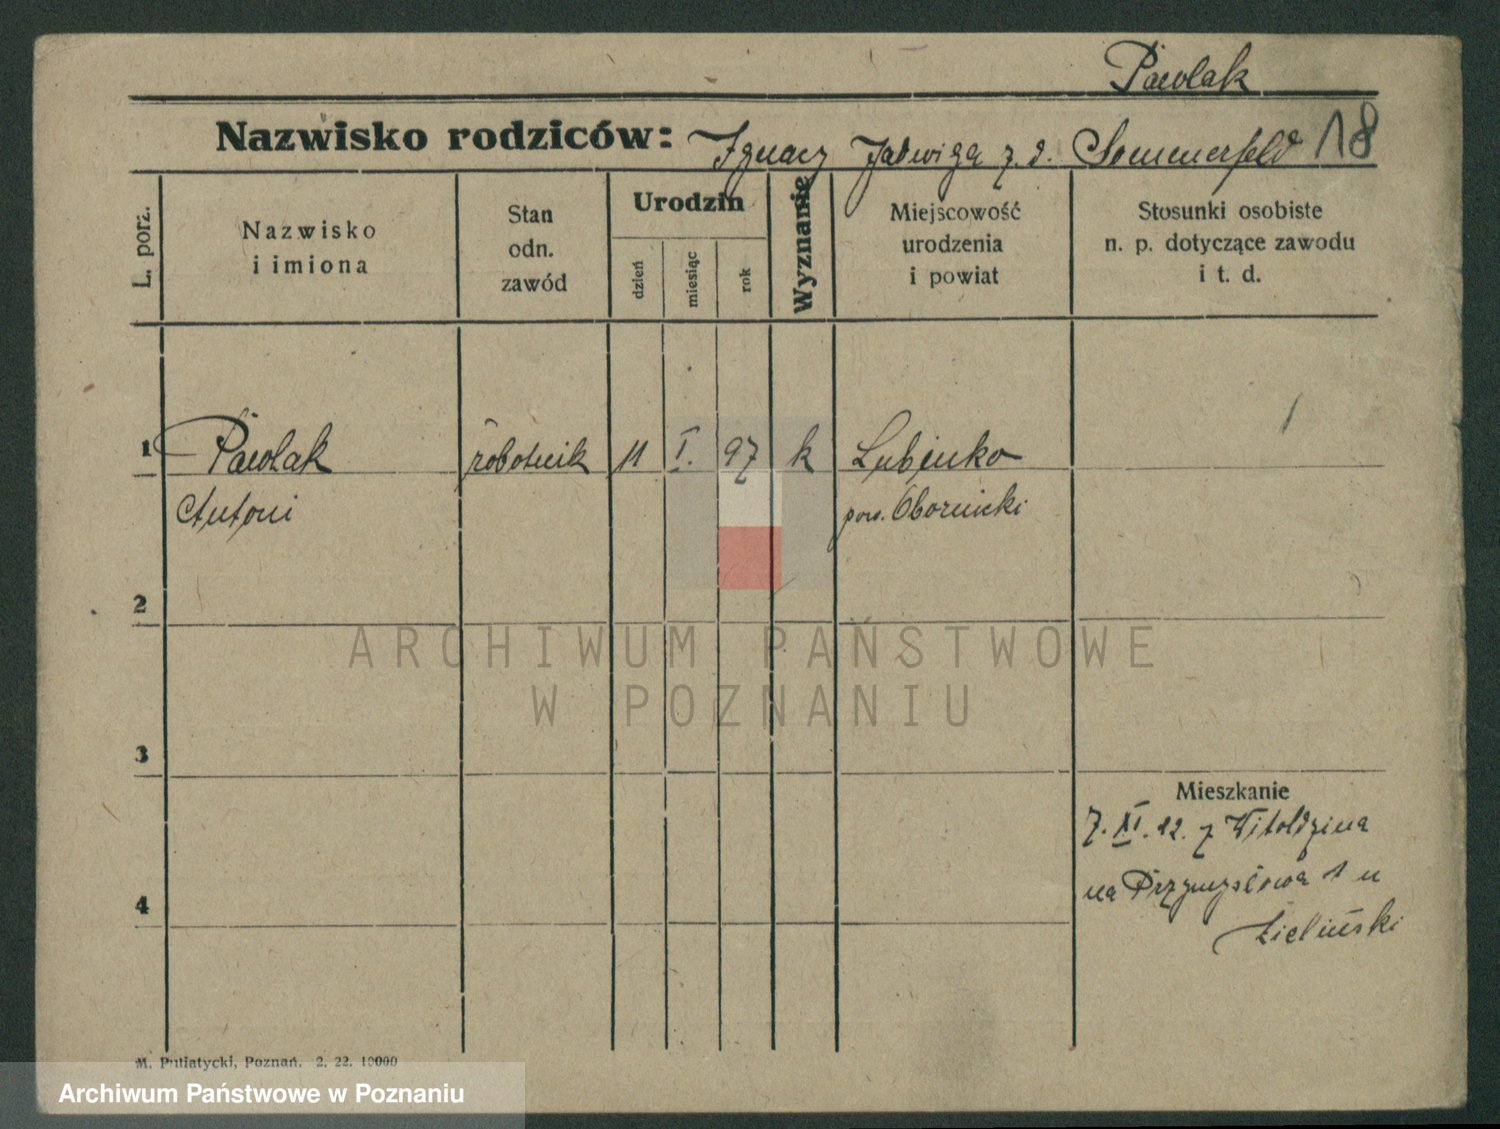 Pawlak
Nazwisko rodziców: Ignacy Jadwiga z d. Sommerfeld 18
L. porz.
Nazwisko
i imiona
Stan
odn.
zawód
Urodzin
dzień
miesiąc
rok
Wyznanie
Miejscowość
urodzenia
i powiat
Stosunki osobiste
n. p. dotyczące zawodu
i t. d.
1 Pawlak robotnik 11 I. 97 k Lubienko
Antoni pow. Obornicki
2
ARCHIWUM PAŃSTWOWE
W POZNANIU
3
Mieszkanie
7. XI. 22. z Witoldzina
na Przemysłowa 1 u
Zieliński
4
M. Putiatycki, Poznań. 2. 22. 10000
Archiwum Państwowe w Poznaniu